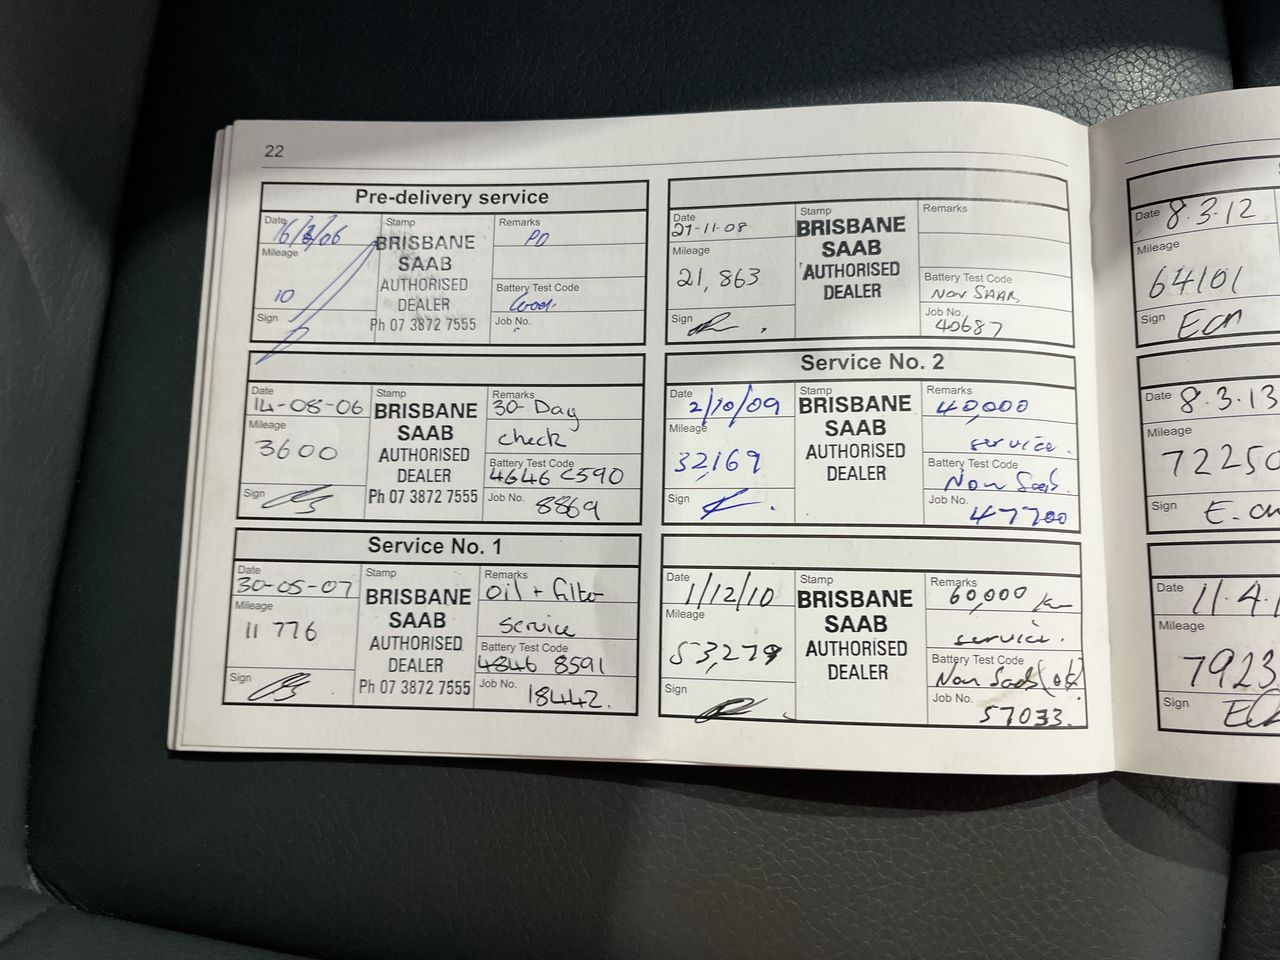 22
Pre-delivery service
Date
Stamp
Remarks
PD
Mileage
10
BRISBANE
SAAB
AUTHORISED
DEALER
Ph 07 3872 7555
Battery Test Code
Good
Sign
Job No.
Date 14-08-06
Mileage
3600
Sign
Stamp
BRISBANE
SAAB
AUTHORISED
DEALER
Ph 07 3872 7555
Remarks
30-Day
check
Battery Test Code
4646 C590
Job No. 8869
Service No. 1
Date
30-05-07
Mileage
11 776
Sign
Stamp
BRISBANE
SAAB
AUTHORISED
DEALER
Ph 07 3872 7555
Remarks
oil + filter
service
Battery Test Code
4846 8591
Job No. 18442.
Date
27-11-08
Mileage
21,863
Sign
Stamp
BRISBANE
SAAB
AUTHORISED
DEALER
Remarks
Battery Test Code
Non SAAB
Job No.
40687
Service No. 2
Date
2/10/09
Mileage
32,169
Sign
Stamp
BRISBANE
SAAB
AUTHORISED
DEALER
Remarks
40,000
service.
Battery Test Code
Non Saab.
Job No.
47700
Date
1/12/10
Mileage
53,279
Sign
Stamp
BRISBANE
SAAB
AUTHORISED
DEALER
Remarks
60,000 km
service.
Battery Test Code
Non Saab (ok)
Job No.
57033.
Date 8.3.12
Mileage
64101
Sign
Date 8.3.13
Mileage
72250
Sign
Date 11.4.1
Mileage
7923
Sign